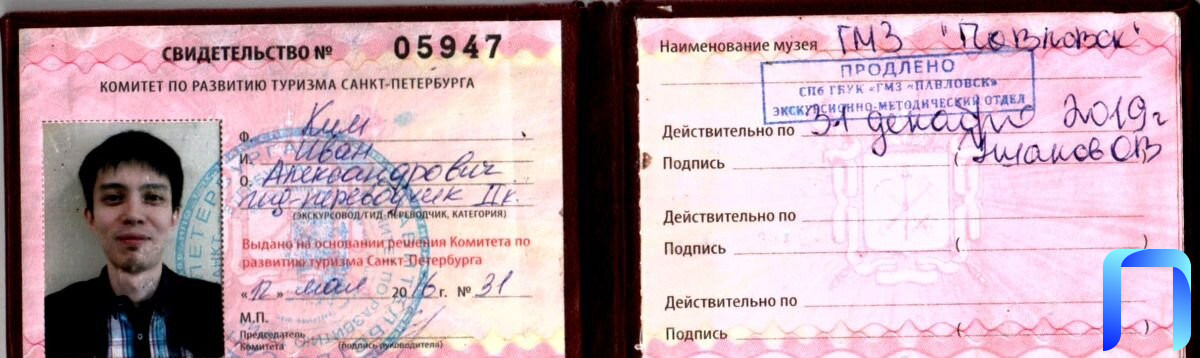 СВИДЕТЕЛЬСТВО № 05947
КОМИТЕТ ПО РАЗВИТИЮ ТУРИЗМА САНКТ-ПЕТЕРБУРГА
Ф. Ким
И. Иван
О. Александрович
гид-переводчик IIк.
(ЭКСКУРСОВОД/ГИД-ПЕРЕВОДЧИК, КАТЕГОРИЯ)
Выдано на основании решения Комитета по
развитию туризма Санкт-Петербурга
«12» мая 2016 г. № 31
М.П.
Председатель
Комитета (подпись руководителя)
Наименование музея ГМЗ "Павловск"
ПРОДЛЕНО
СПб ГБУК «ГМЗ «ПАВЛОВСК»
ЭКСКУРСИОННО-МЕТОДИЧЕСКИЙ ОТДЕЛ
Действительно по 31 декабря 2019 г
Подпись (Ушакова ОВ
Действительно по
Подпись ( )
Действительно по
Подпись ( )